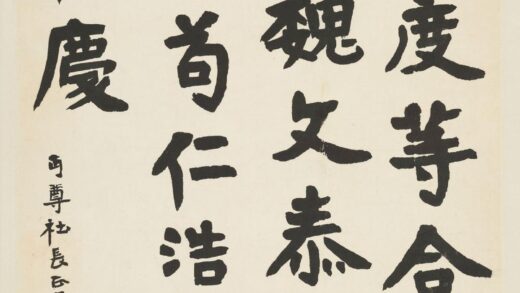 度等合
魏文泰
苟仁浩
慶
丏尊社長正